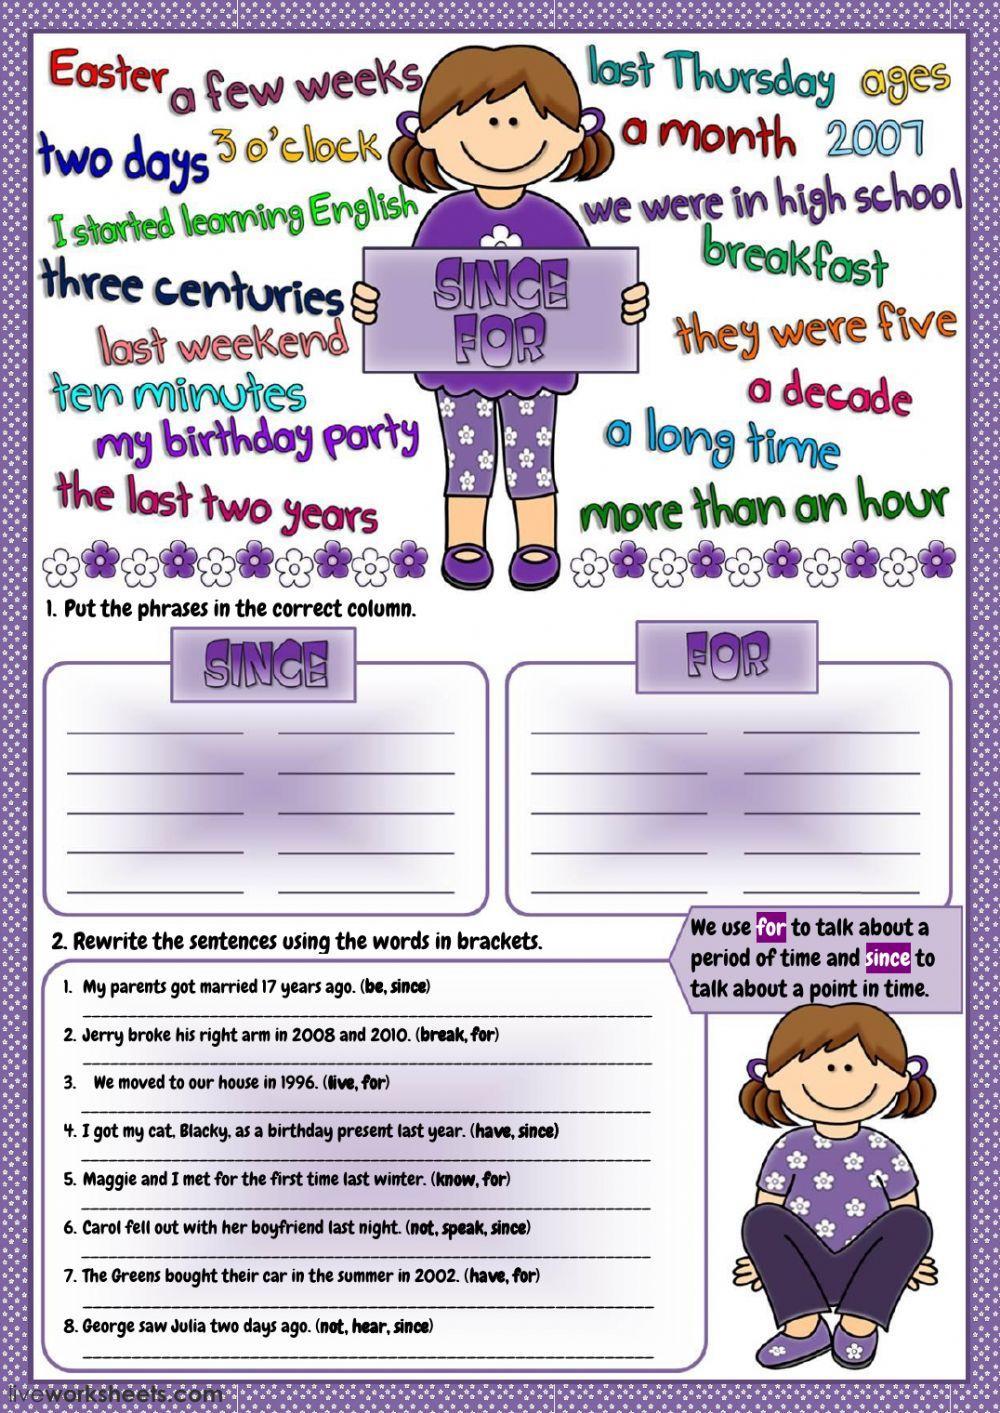 Easter
a few weeks
last Thursday
ages
two days
3 o'clock
a month
2007
I started learning English
we were in high school
breakfast
three centuries
SINCE
FOR
last weekend
they were five
ten minutes
a decade
my birthday party
a long time
the last two years
more than an hour
1. Put the phrases in the correct column.
SINCE
FOR
2. Rewrite the sentences using the words in brackets.
We use for to talk about a
period of time and since to
talk about a point in time.
1. My parents got married 17 years ago. (be, since)
2. Jerry broke his right arm in 2008 and 2010. (break, for)
3. We moved to our house in 1996. (live, for)
4. I got my cat, Blacky, as a birthday present last year. (have, since)
5. Maggie and I met for the first time last winter. (know, for)
6. Carol fell out with her boyfriend last night. (not, speak, since)
7. The Greens bought their car in the summer in 2002. (have, for)
8. George saw Julia two days ago. (not, hear, since)
liveworksheets.com